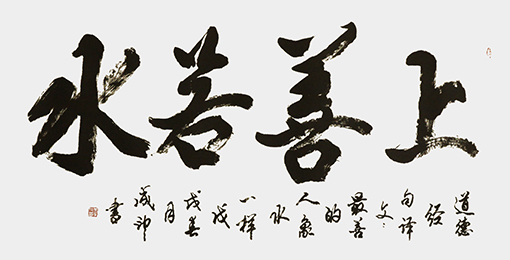 上善若水
道德
经
句译
文：
最善
的
人象
水
一样
戊
戌春
月
书